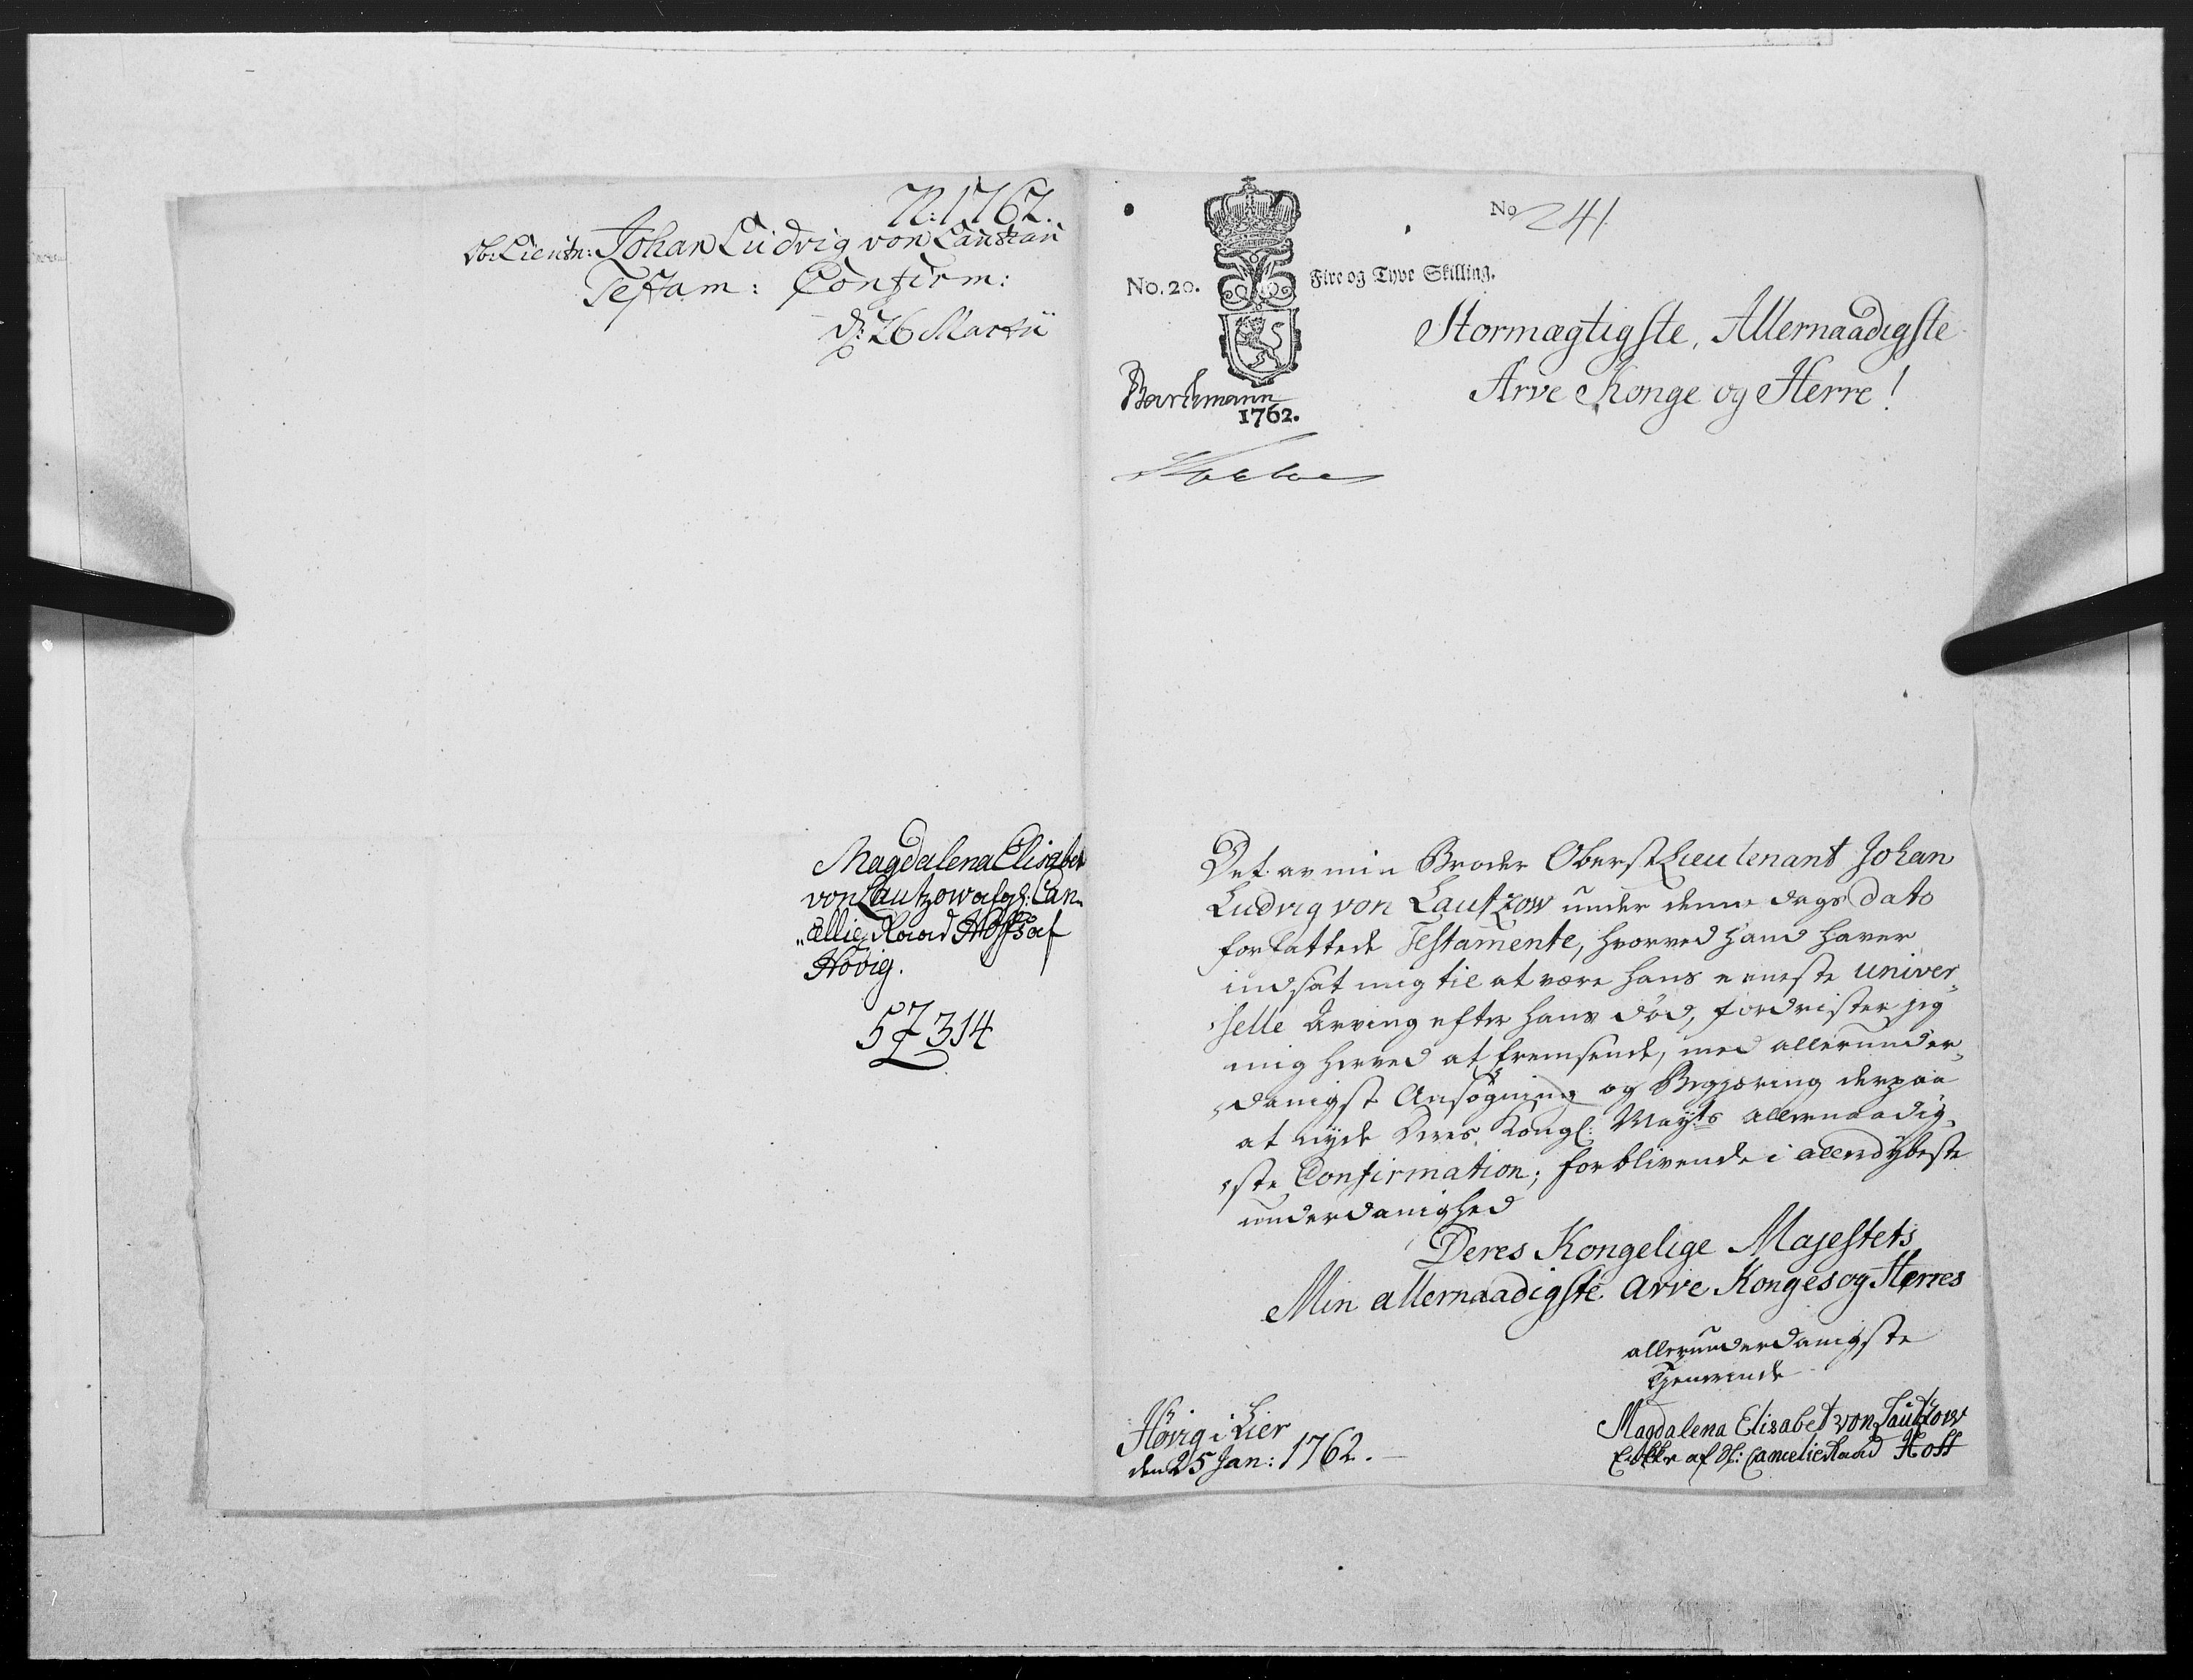 N: 1762.
ObLieutn: Johan Ludvig von Lautzau
Testam: Confirm:
d: 26 Martii
Magdalena Elisabet
von Lautzow Can
„cellie Raad Hoffs af
Høvig.
No 241
No. 20.
Fire og Tyve Skilling.
1762.
Stormægtigste, Allernaadigste
Arve Konge og Herre!
Det av min Broder Oberst Lieutenant Johan
Ludvig von Lautzow under denne dags dato
forfattede Testamente, hvorved hand haver
indsat mig til at være hans eeneste univer„
„selle Arving efter hans død, fordrister jeg
mig herved at fremsende, med allerunder„
„danigst Ansøgning og Begjæring derpaa
at nyde Deres Kongl: Mayts allernaadig„
„ste Confirmation; forblivende i allerdybeste
underdanighed
Deres Kongelige Majestets
Min allernaadigste Arve Konges og Herres
allerunderdanigste
Tjenerinde
Magdalena Elisabet von Lautzow
Enke af Sl: Cancelie Raad Hoff
Høvig i Lier
den 25 Jan: 1762.